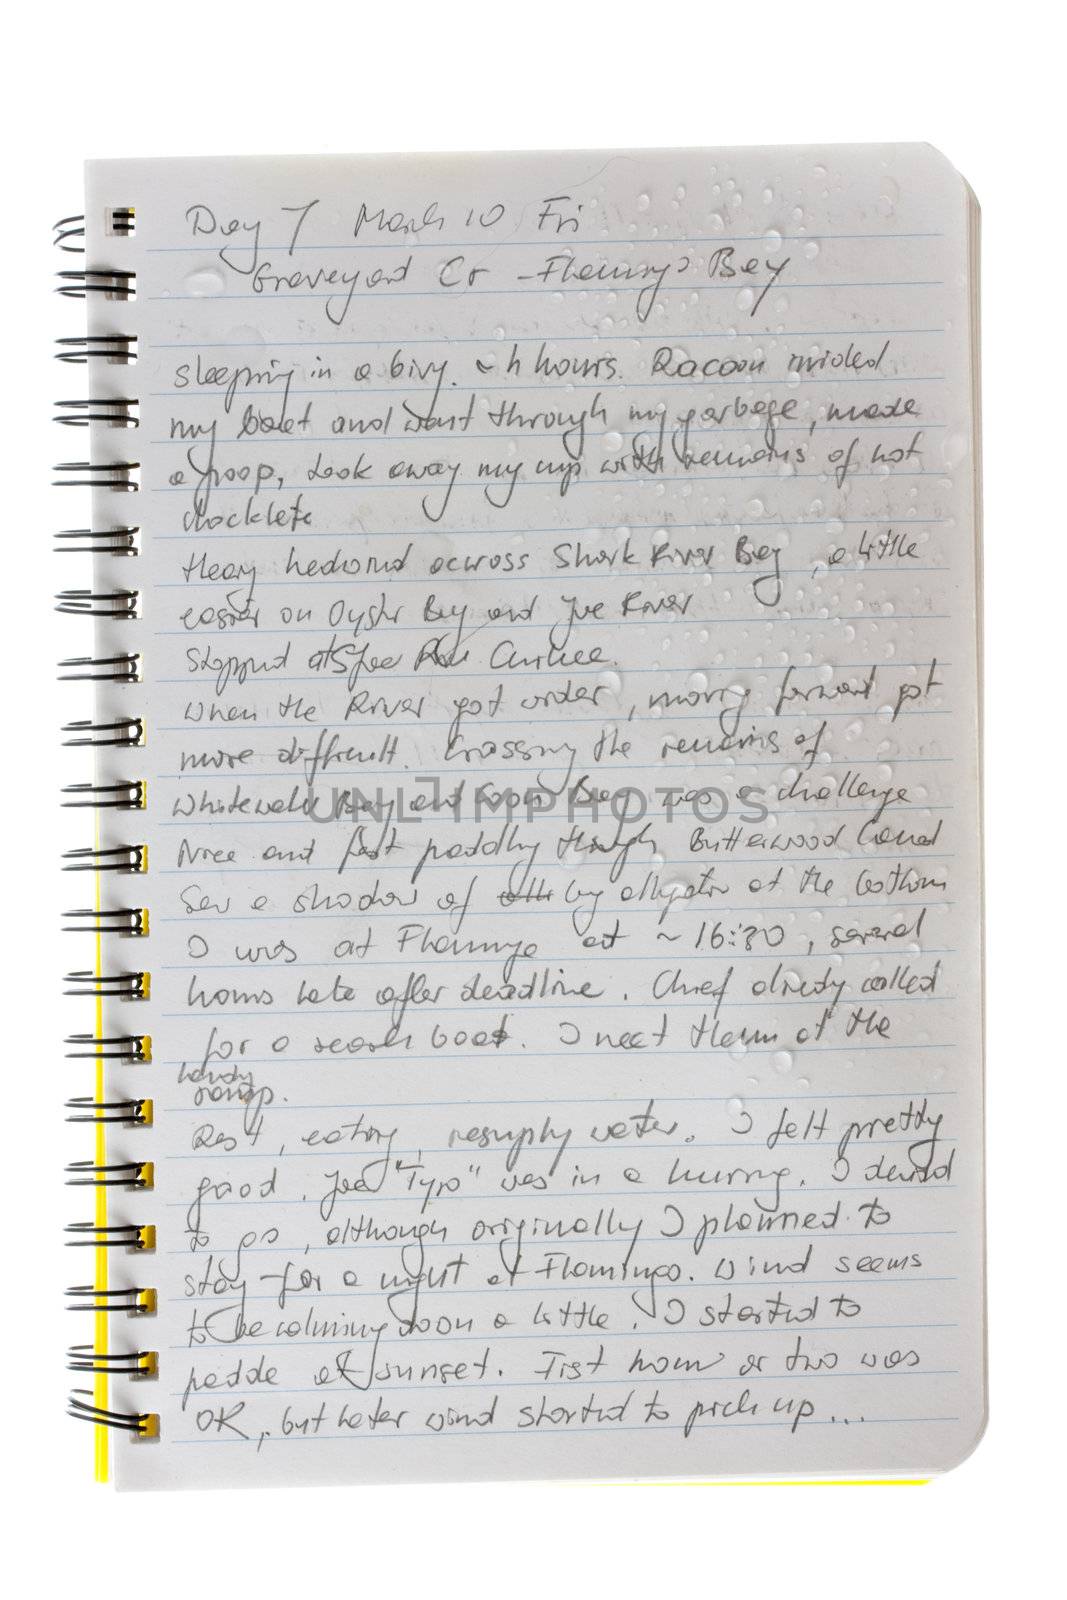 Day 7 March 10 Fri
Graveyard Cr - Flamingo Bay
sleeping in a bivy. ~ 4 hours. Racoon raided
my boat and went through my garbage, made
a poop, took away my cup with remains of hot
chocklete
Heavy headwind across Shark River Bay, a little
easier on Oyster Bay and Joe River
Stopped at Joe River Chickee.
When the River got wider, moving forward got
more difficult. Crossing the remains of
Whitewater Bay and Coon Bay was a challenge
Nice and fast paddling through Buttonwood Canal
Saw a shadow of big alligator at the bottom
I was at Flamingo at ~ 16:30, several
hours late after deadline. Chief already called
for a search boat. I meet them at the
handy
ramp.
Rest, eating, resupply water. I felt pretty
good. Joe "Typo" was in a hurry. I decided
to go, although originally I planned to
stay for a night at Flamingo. Wind seems
to be calming down a little. I started to
paddle at sunset. First hour or two was
OK, but later wind started to pick up ...
UNLIMPHOTOS